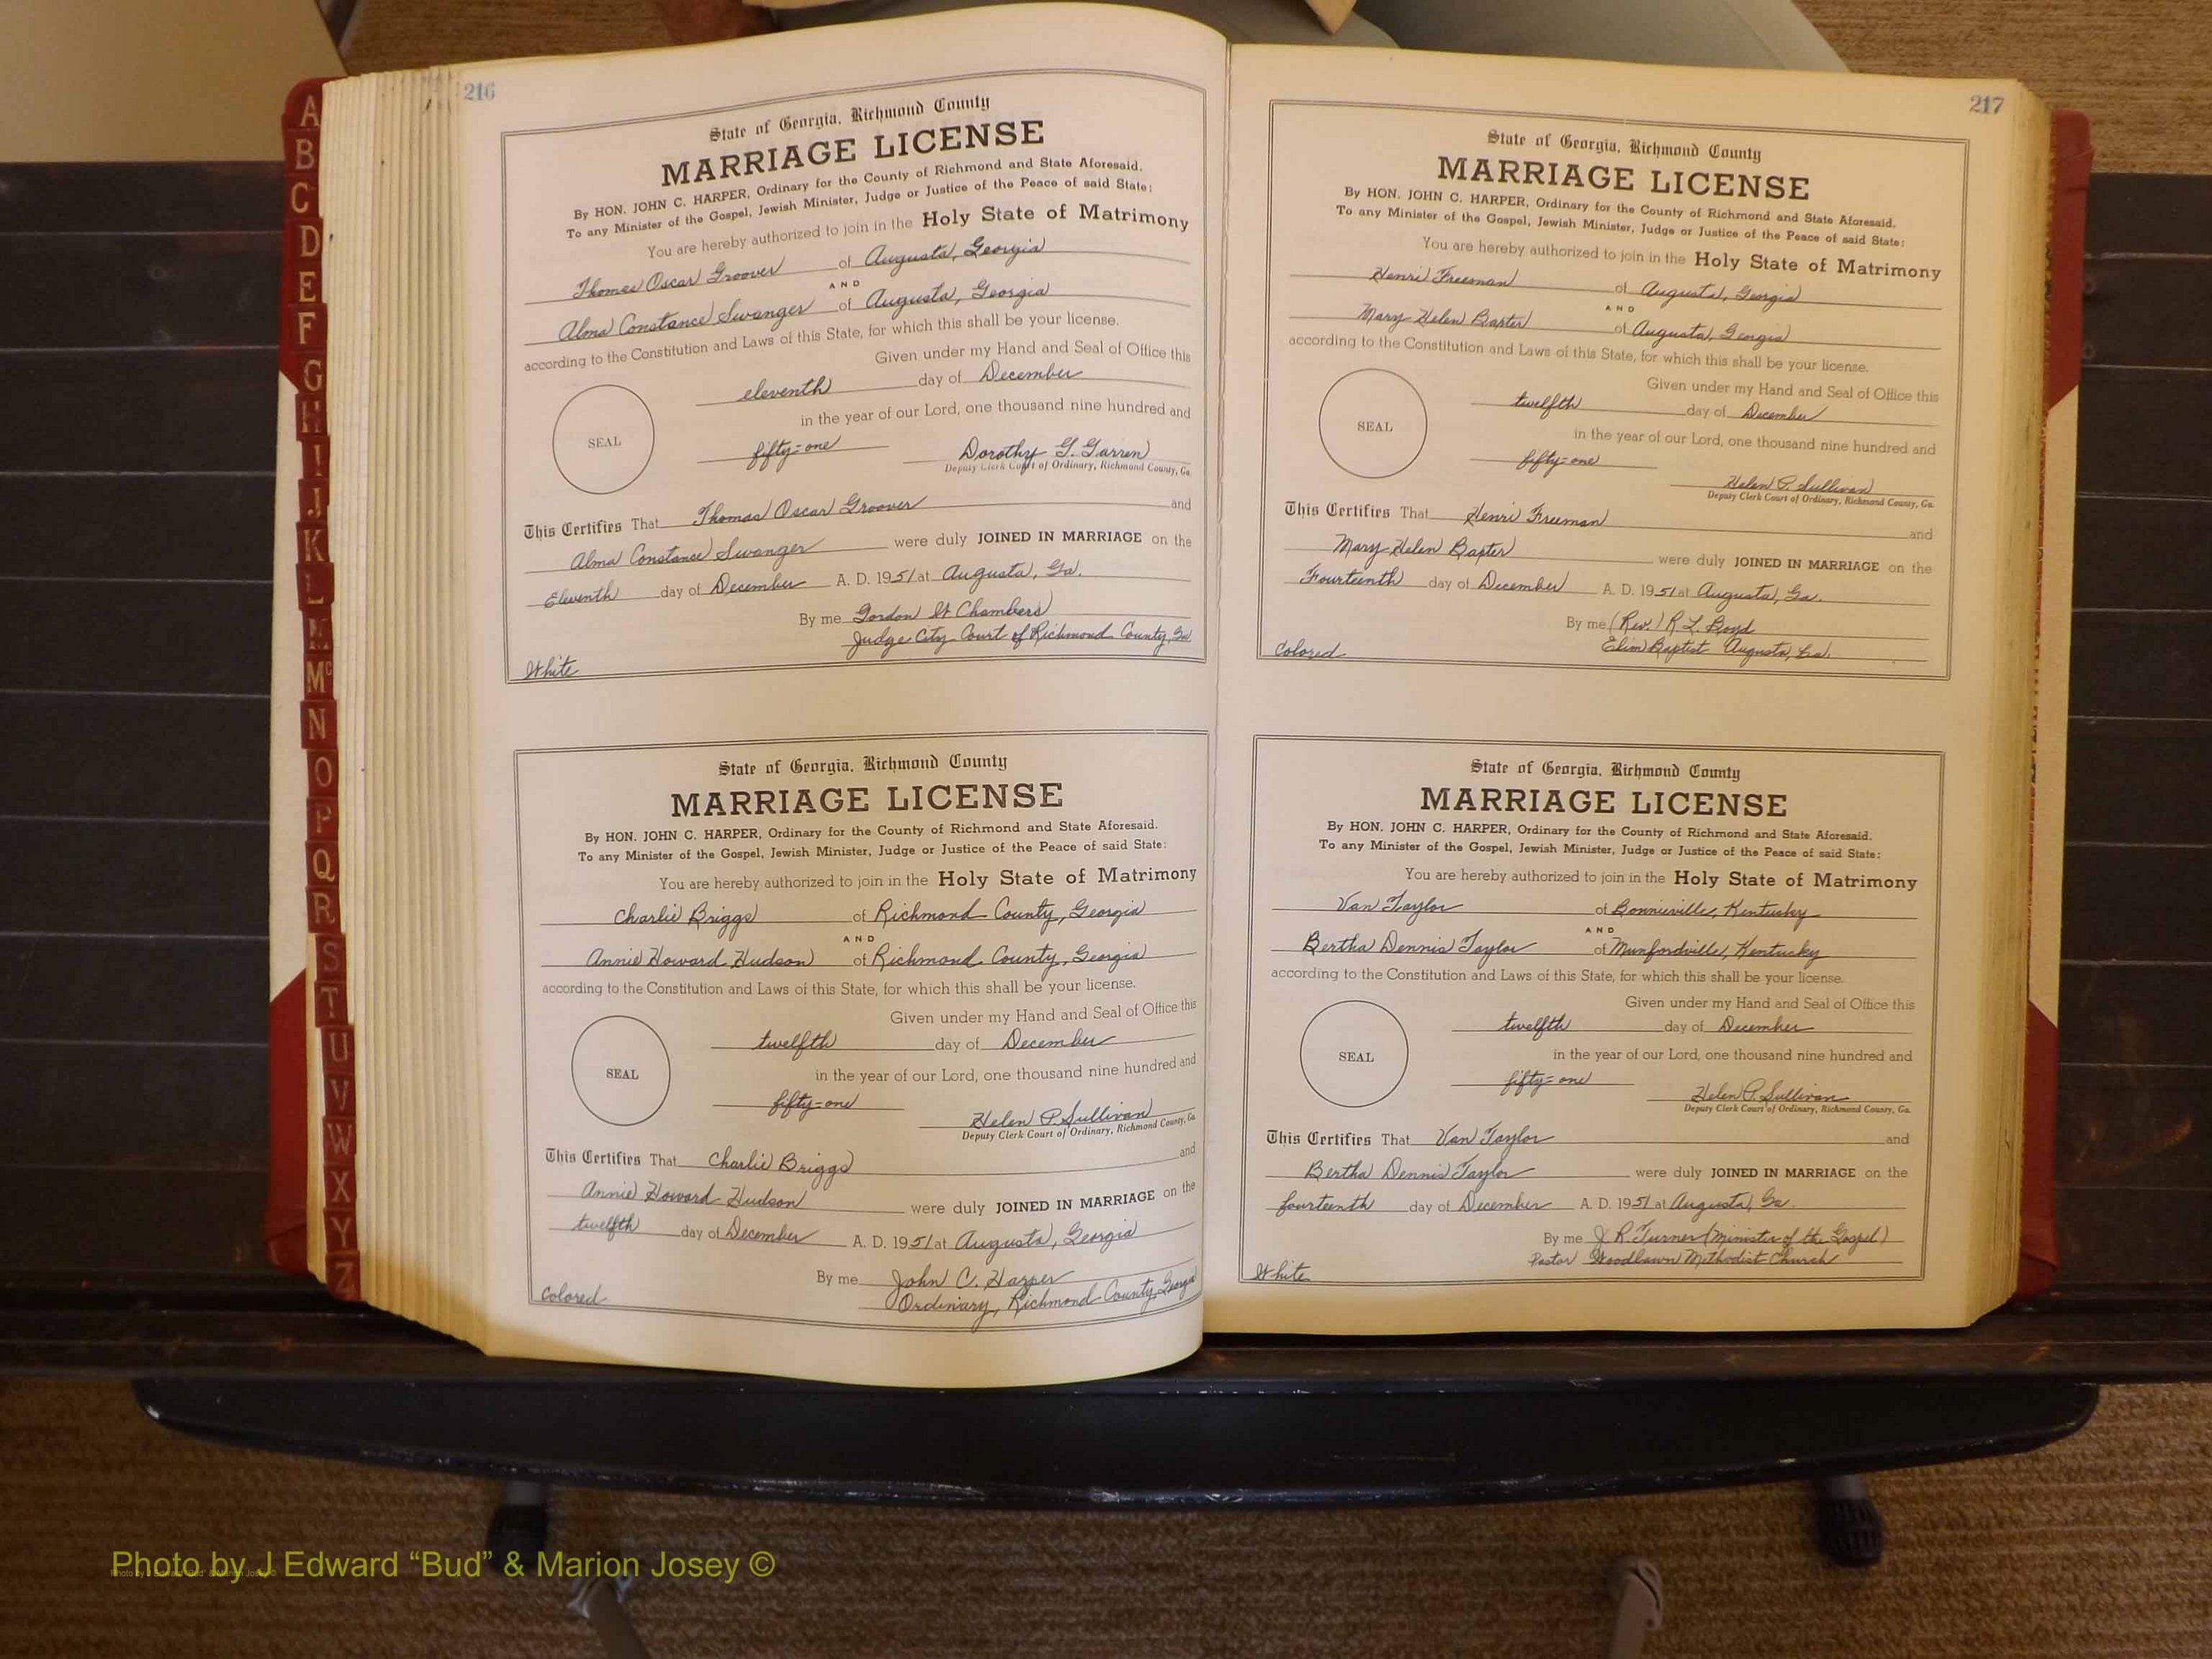 A
B
C
D
E
F
G
H
I
J
K
L
M
Mc
N
O
P
Q
R
S
T
U
V
W
X
Y
Z
216
State of Georgia, Richmond County
MARRIAGE LICENSE
By HON. JOHN C. HARPER, Ordinary for the County of Richmond and State Aforesaid.
To any Minister of the Gospel, Jewish Minister, Judge or Justice of the Peace of said State:
You are hereby authorized to join in the Holy State of Matrimony
Thomas Oscar Groover of Augusta, Georgia
AND
Alma Constance Swanger of Augusta, Georgia
according to the Constitution and Laws of this State, for which this shall be your license.
Given under my Hand and Seal of Office this
eleventh day of December
in the year of our Lord, one thousand nine hundred and
SEAL
fifty-one Dorothy G. Garren
Deputy Clerk Court of Ordinary, Richmond County, Ga.
This Certifies That Thomas Oscar Groover and
Alma Constance Swanger were duly JOINED IN MARRIAGE on the
Eleventh day of December A. D. 1951 at Augusta, Ga.
By me Gordon W Chambers
Judge City Court of Richmond County, Ga
White
State of Georgia, Richmond County
MARRIAGE LICENSE
By HON. JOHN C. HARPER, Ordinary for the County of Richmond and State Aforesaid.
To any Minister of the Gospel, Jewish Minister, Judge or Justice of the Peace of said State:
You are hereby authorized to join in the Holy State of Matrimony
Charlie Briggs of Richmond County, Georgia
AND
Annie Howard Hudson of Richmond County, Georgia
according to the Constitution and Laws of this State, for which this shall be your license.
Given under my Hand and Seal of Office this
twelfth day of December
SEAL
in the year of our Lord, one thousand nine hundred and
fifty-one Helen P. Sullivan
Deputy Clerk Court of Ordinary, Richmond County, Ga.
This Certifies That Charlie Briggs and
Annie Howard Hudson were duly JOINED IN MARRIAGE on the
twelfth day of December A. D. 1951 at Augusta, Georgia
By me John C. Harper
Ordinary, Richmond County, Georgia
Colored
217
State of Georgia, Richmond County
MARRIAGE LICENSE
By HON. JOHN C. HARPER, Ordinary for the County of Richmond and State Aforesaid.
To any Minister of the Gospel, Jewish Minister, Judge or Justice of the Peace of said State:
You are hereby authorized to join in the Holy State of Matrimony
Henri Freeman of Augusta, Georgia
AND
Mary Helen Baxter of Augusta, Georgia
according to the Constitution and Laws of this State, for which this shall be your license.
Given under my Hand and Seal of Office this
twelfth day of December
SEAL
in the year of our Lord, one thousand nine hundred and
fifty-one Helen P. Sullivan
Deputy Clerk Court of Ordinary, Richmond County, Ga.
This Certifies That Henri Freeman and
Mary Helen Baxter were duly JOINED IN MARRIAGE on the
Fourteenth day of December A. D. 1951 at Augusta, Ga.
By me (Rev.) R. L. Boyd
Elim Baptist Augusta, Ga.
Colored
State of Georgia, Richmond County
MARRIAGE LICENSE
By HON. JOHN C. HARPER, Ordinary for the County of Richmond and State Aforesaid.
To any Minister of the Gospel, Jewish Minister, Judge or Justice of the Peace of said State:
You are hereby authorized to join in the Holy State of Matrimony
Van Taylor of Bonnieville, Kentucky
AND
Bertha Dennis Taylor of Munfordville, Kentucky
according to the Constitution and Laws of this State, for which this shall be your license.
Given under my Hand and Seal of Office this
twelfth day of December
SEAL
in the year of our Lord, one thousand nine hundred and
fifty-one Helen P. Sullivan
Deputy Clerk Court of Ordinary, Richmond County, Ga.
This Certifies That Van Taylor and
Bertha Dennis Taylor were duly JOINED IN MARRIAGE on the
fourteenth day of December A. D. 1951 at Augusta, Ga.
By me J. R. Turner (Minister of the Gospel)
Pastor Woodlawn Methodist Church
White
Photo by J Edward “Bud” & Marion Josey ©